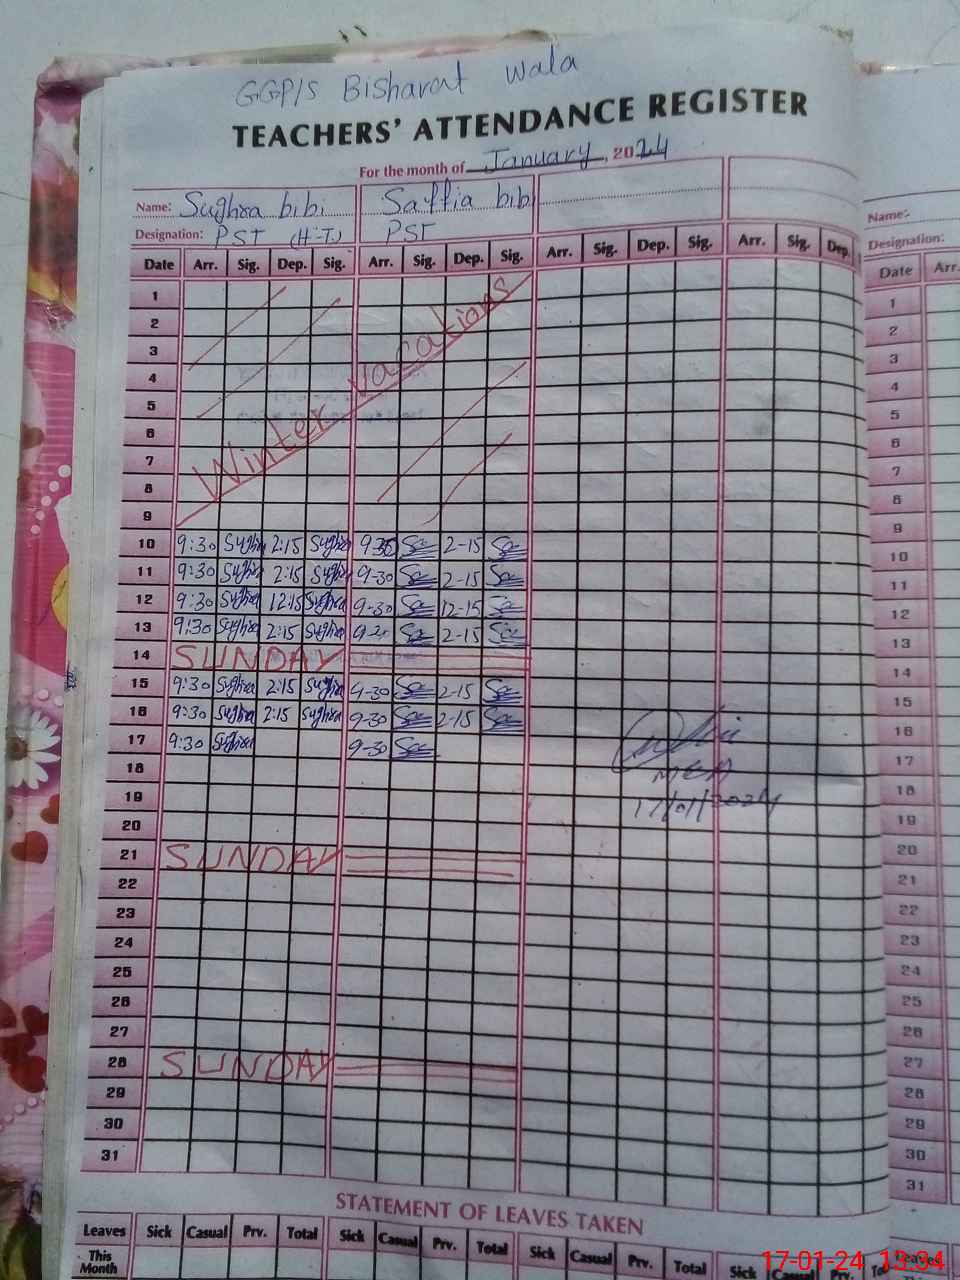 GGP/S Bisharat Wala
TEACHERS' ATTENDANCE REGISTER
For the month of January, 2024
Name: Sughra bibi Saffia bibi
Designation: PST (H-T) PST
Date Arr. Sig. Dep. Sig. Arr. Sig. Dep. Sig. Arr. Sig. Dep. Sig. Arr. Sig. Dep.
1
2
3
4
5
6
7
8
9
Winter vacations
10 9:30 Sughra 2:15 Sughra 9-30 2-15
11 9:30 Sughra 2:15 Sughra 9-30 2-15
12 9:30 Sughra 12:15 Sughra 9-30 12-15
13 9:30 Sughra 2:15 Sughra 9-30 2-15
14 SUNDAY
15 9:30 Sughra 2:15 Sughra 9-30 2-15
16 9:30 Sughra 2:15 Sughra 9-30 2-15
17 9:30 Sughra 9-30
MEA
17/01/2024
18
19
20
21 SUNDAY
22
23
24
25
26
27
28 SUNDAY
29
30
31
STATEMENT OF LEAVES TAKEN
Leaves Sick Casual Prv. Total Sick Casual Prv. Total Sick Casual Prv. Total Sick Casual Prv.
This Month
Name:
Designation:
Date Arr.
1
2
3
4
5
6
7
8
9
10
11
12
13
14
15
16
17
18
19
20
21
22
23
24
25
26
27
28
29
30
31
Leaves
17-01-24 13:34